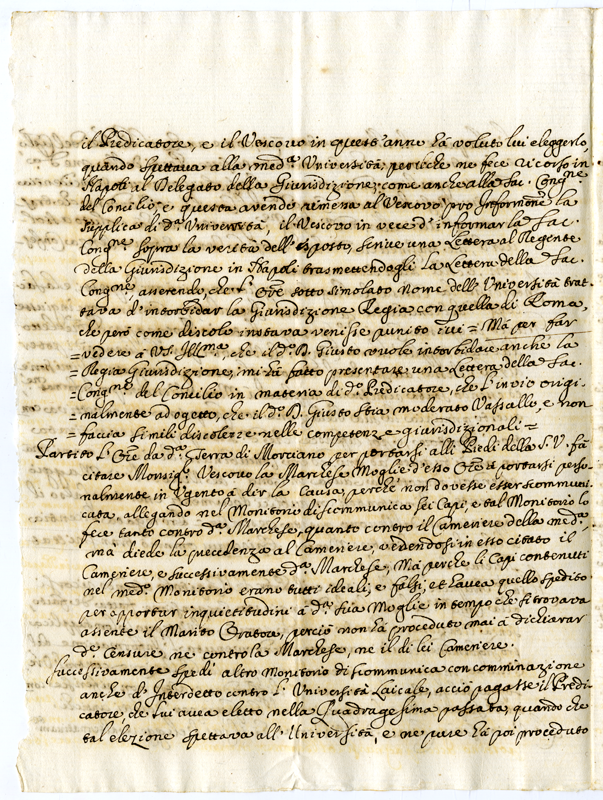 il Predicatore, e il Vescovo in quest'anno hà voluto lui eleggerlo,
quando spettava alla med:ª Università; perilche ne fece ricorso in
Napoli al Delegato della Giurisdizione, come anche alla Sac. Cong:ne
del Concilio; e questa avendo rimessa al Vescovo pro Informe la
supplica di d:ª Università, il Vescovo in vece d'informar la Sac.
Cong:ne sopra la verità dell'esposto, scrive una Lettera al Regente
della Giurisdizione in Napoli trasmettendogli la Lettera della Sac.
Cong:ne, asserendo, che l'Ore sotto simolato nome dell'Università trat-
tava d'intorbidar la Giurisdizione Regia con quella di Roma,
che però come discolo instava venisse punito = Ma per far
= vedere a V.S. Ill:ma, che il d:º D. Giusto vuole intorbidare anche la
= Regia Giurisdizione, mi hà fatto presentare una Lettera della Sac.
= Cong:ne del Concilio in materia di d:º Predicatore, che l'invio origi-
= nalmente ad ogetto, che il d:º D. Giusto stia moderato Vassallo, e non
= faccia simili discolezze nelle competenze giurisdizionali =
Partito l'Ore da d:ª Terra di Morciano per portarsi alli Piedi della S.V. fà
citare Monsig:r Vescovo la Marchesa Moglie d'esso Ore à portarsi perso-
nalmente in Ugento à dir la causa, perche non dovesse esser scommuni-
cata, allegando nel Monitorio di scommunica sei Capi, e tal Monitorio lo
fece tanto contro d:ª Marchese, quanto contro il Cameriere della med:ª
mà diede la precedenza al Cameriere, vedendosi in esso citato il
Cameriere, e successivamente d:ª Marchese, Mà perche li Capi contenuti
nel med:º Monitorio erano tutti ideali, e falsi, et havea quello spedito
per apportar inquietitudini à d:ª sua Moglie in tempo che si trovava
assente il Marito Oratore, perciò non hà proceduto mai à dichiarar
d:e Censure ne contro la Marchese, ne il di lei Cameriere.
Successivamente spedì altro Monitorio di scommunica con comminazione
anche d'Interdetto contro l'Università Laicale, acciò pagasse il Predi-
catore, che lui avea eletto nella Quadragesima passata, quando che
tal elezione spettava all'Università, e ne pure hà poi proceduto